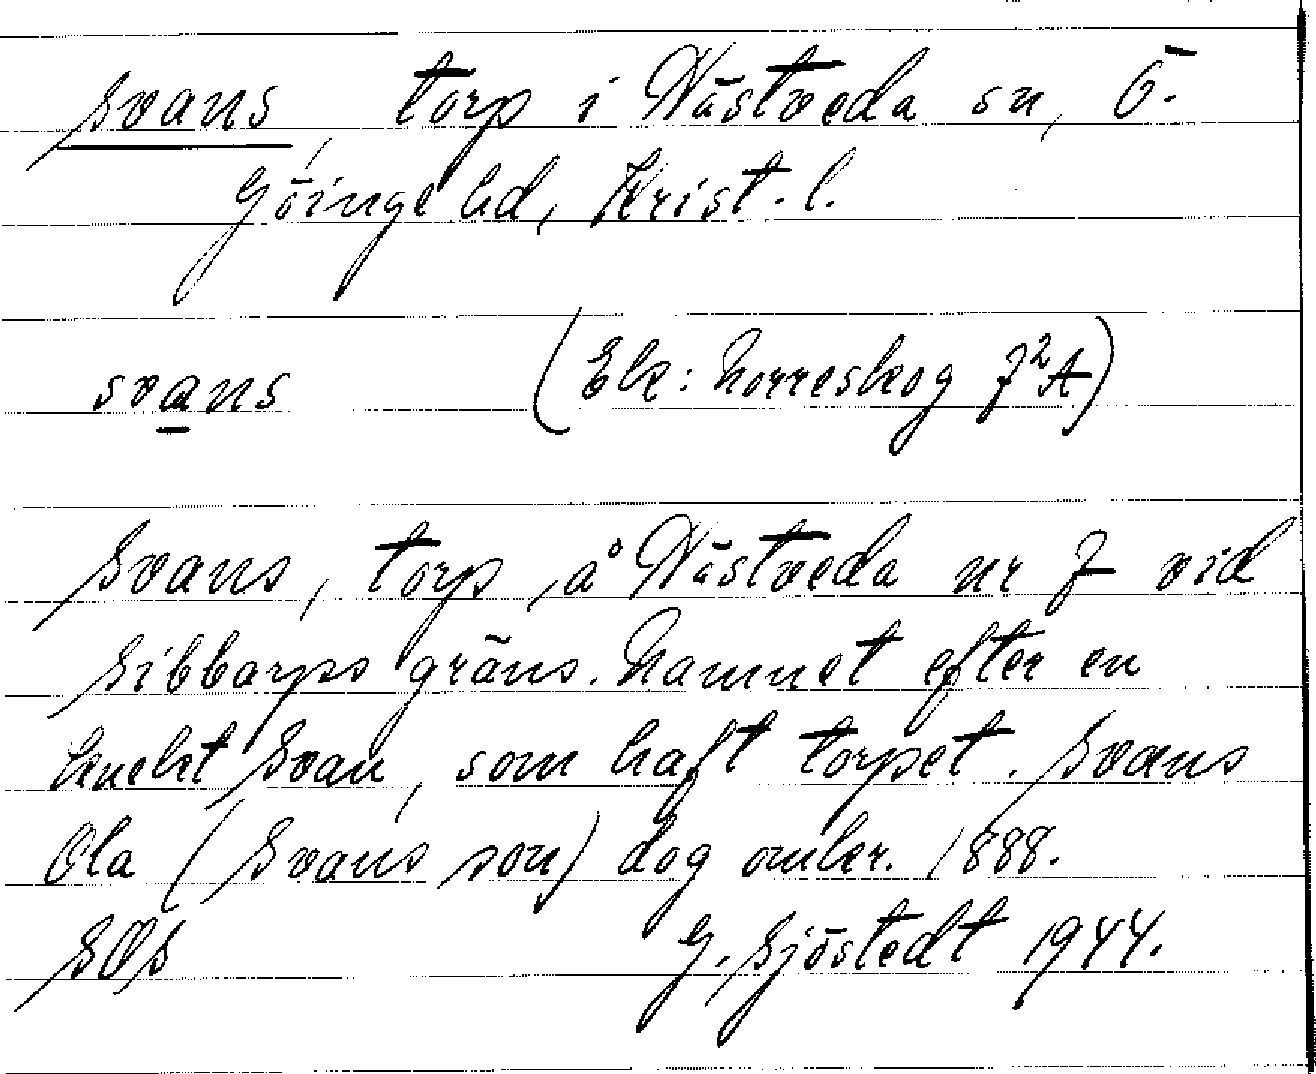 Svans, torp i Nästveda sn, Ö.
Göinge hd, Krist. l.
svans (Ek: Norreskog J²A)
Svans, torp, å Nästveda nr 7 vid
Sibbarps gräns. Namnet efter en
knekt Svan, som haft torpet. Svans
Ola (Svans son) dog omkr. 1888.
SOS G. Sjöstedt 1944.